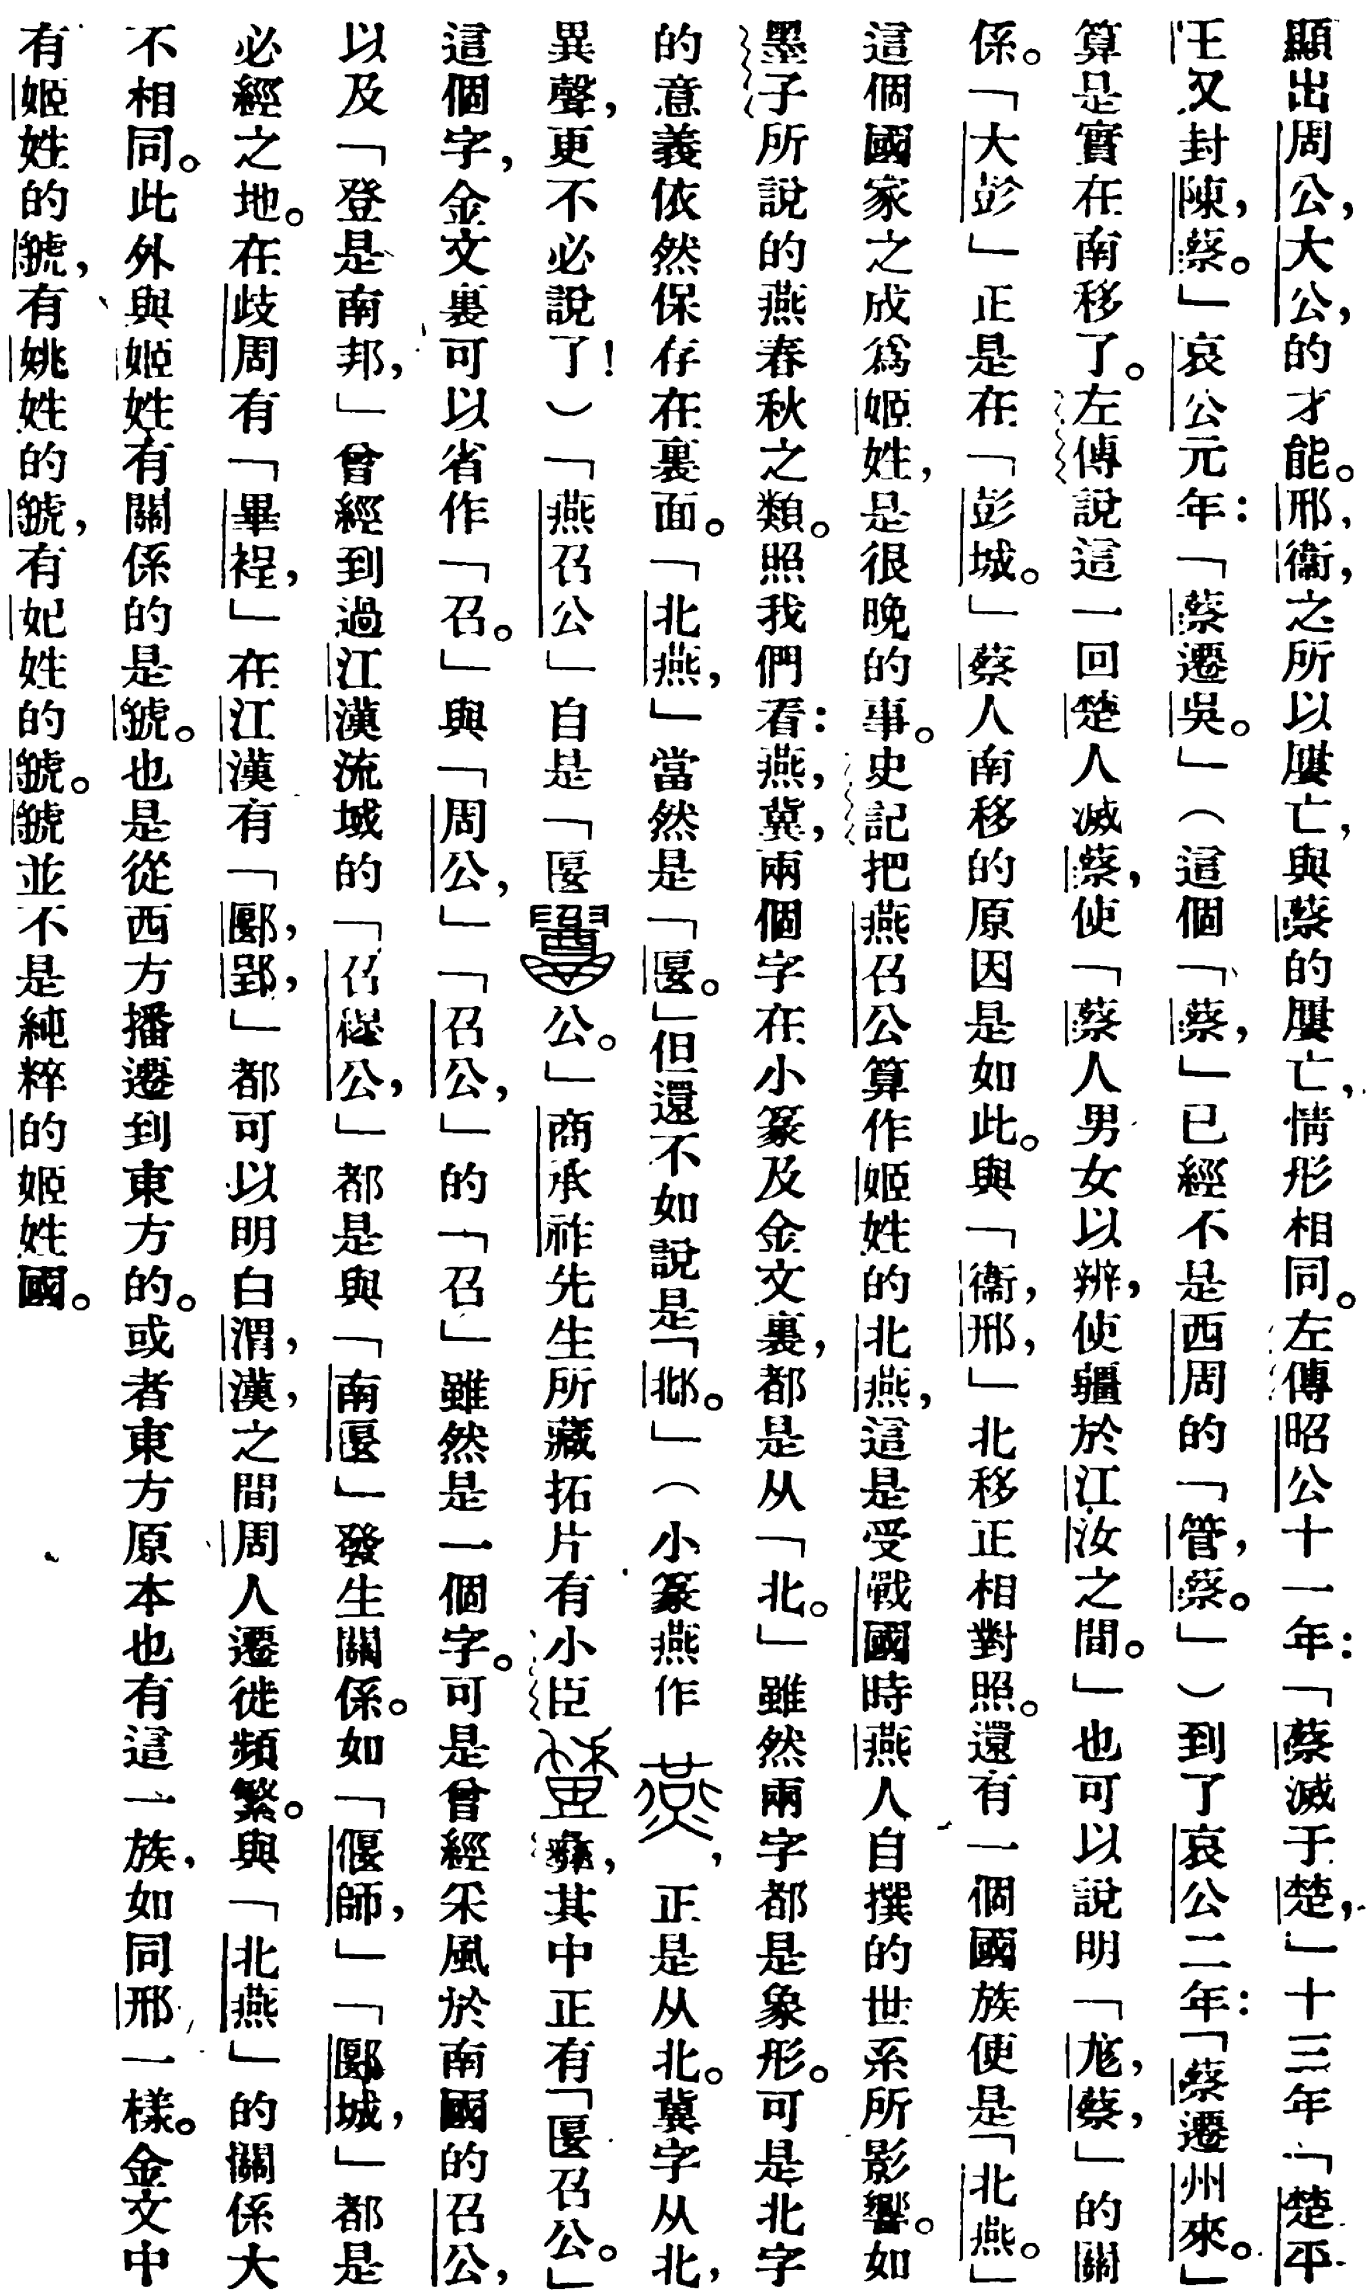 顯出周公，大公，的才能。邢，衞，之所以屢亡，與蔡的屢亡，情形相同。左傳昭公十一年：「蔡滅于楚，」十三年「楚平
王又封陳，蔡。」哀公元年：「蔡遷吳。」（這個「蔡，」已經不是西周的「管，蔡。」）到了哀公二年：「蔡遷州來。」
算是實在南移了。左傳說這一回楚人滅蔡，使「蔡人男女以辨，使疆於江汝之間。」也可以說明「尨，蔡，」的關
係。「大彭」正是在「彭城。」蔡人南移的原因是如此。與「衞，邢，」北移正相對照。還有一個國族使是「北燕。」
這個國家之成爲姬姓，是很晚的事。史記把燕召公算作姬姓的北燕，這是受戰國時燕人自撰的世系所影響。如
墨子所說的燕春秋之類。照我們看：燕，冀，兩個字在小篆及金文裏，都是从「北。」雖然兩字都是象形。可是北字
的意義依然保存在裏面。「北燕，」當然是「匽。」但還不如說是「邶。」（小篆燕作，正是从北。冀字从北，
異聲，更不必說了！）「燕召公」自是「匽公。」商承祚先生所藏拓片有小臣彝，其中正有「匽召公。」
這個字，金文裏可以省作「召。」與「周公，」「召公，」的「召」雖然是一個字。可是曾經采風於南國的召公，
以及「登是南邦，」曾經到過江漢流域的「召穆公，」都是與「南匽」發生關係。如「偃師，」「郾城，」都是
必經之地。在歧周有「畢裎，」在江漢有「郾，郢，」都可以明白渭，漢，之間周人遷徙頻繁。與「北燕」的關係大
不相同。此外與姬姓有關係的是虢。也是從西方播遷到東方的。或者東方原本也有這一族，如同邢一樣。金文中
有姬姓的虢，有姚姓的虢，有妃姓的虢。虢並不是純粹的姬姓國。